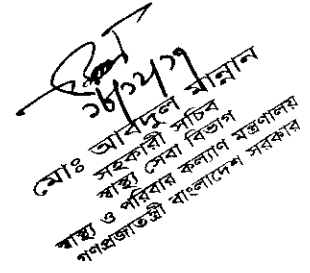 মোঃ আবদুল মান্নান
সহকারী সচিব
স্বাস্থ্য সেবা বিভাগ
স্বাস্থ্য ও পরিবার কল্যাণ মন্ত্রণালয়
গণপ্রজাতন্ত্রী বাংলাদেশ সরকার